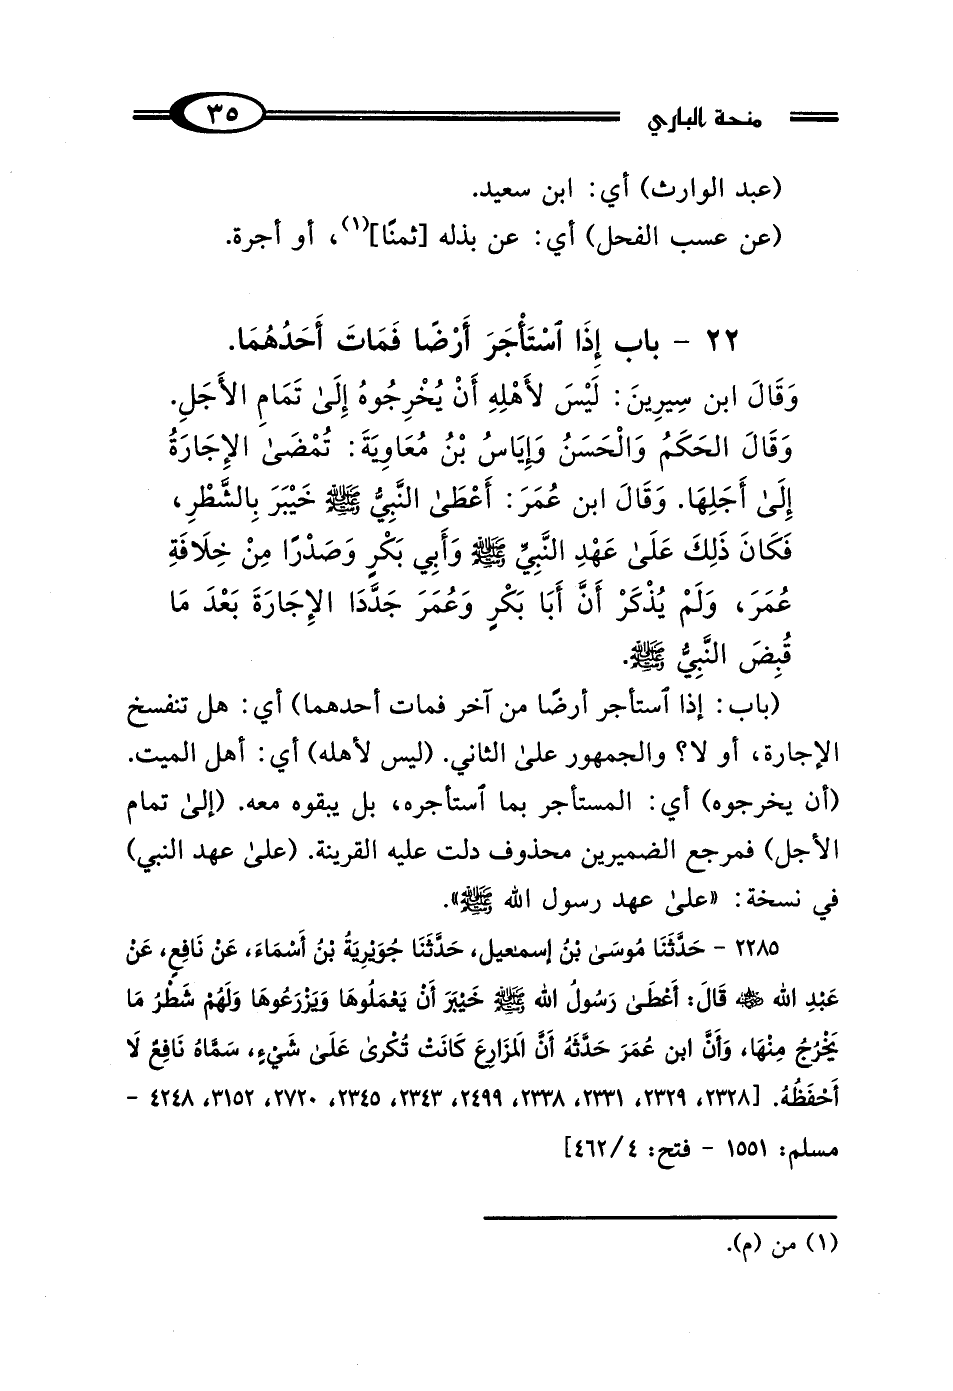 منحة الباري
٣٥
(عبد الوارث) أي: ابن سعيد.
(عن عسب الفحل) أي: عن بذله [ثمنًا](١)، أو أجرة.
٢٢ - باب إِذَا ٱسْتَأْجَرَ أَرْضًا فَمَاتَ أَحَدُهُمَا.
وَقَالَ ابن سِيرِينَ: لَيْسَ لأَهْلِهِ أَنْ يُخْرِجُوهُ إِلَىٰ تَمَامِ الأَجَلِ.
وَقَالَ الحَكَمُ وَالْحَسَنُ وَإِيَاسُ بْنُ مُعَاوِيَةَ: تُمْضَىٰ الإِجَارَةُ
إِلَىٰ أَجَلِهَا. وَقَالَ ابن عُمَرَ: أَعْطَىٰ النَّبِيُّ ﷺ خَيْبَرَ بِالشَّطْرِ،
فَكَانَ ذَلِكَ عَلَىٰ عَهْدِ النَّبِيِّ ﷺ وَأَبِي بَكْرٍ وَصَدْرًا مِنْ خِلَافَةِ
عُمَرَ، وَلَمْ يُذْكَرْ أَنَّ أَبَا بَكْرٍ وَعُمَرَ جَدَّدَا الإِجَارَةَ بَعْدَ مَا
قُبِضَ النَّبِيُّ ﷺ.
(باب: إذا ٱستأجر أرضًا من آخر فمات أحدهما) أي: هل تنفسخ
الإجارة، أو لا؟ والجمهور علىٰ الثاني. (ليس لأهله) أي: أهل الميت.
(أن يخرجوه) أي: المستأجر بما ٱستأجره، بل يبقوه معه. (إلىٰ تمام
الأجل) فمرجع الضميرين محذوف دلت عليه القرينة. (علىٰ عهد النبي)
في نسخة: «علىٰ عهد رسول الله ﷺ».
٢٢٨٥ - حَدَّثَنَا مُوسَىٰ بْنُ إسمعيل، حَدَّثَنَا جُوَيْرِيَةُ بْنُ أَسْمَاءَ، عَنْ نَافِعٍ، عَنْ
عَبْدِ الله ﵁ قَالَ: أَعْطَىٰ رَسُولُ الله ﷺ خَيْبَرَ أَنْ يَعْمَلُوهَا وَيَزْرَعُوهَا وَلَهُمْ شَطْرُ مَا
يَخْرُجُ مِنْهَا، وَأَنَّ ابن عُمَرَ حَدَّثَهُ أَنَّ المَزَارِعَ كَانَتْ تُكْرىٰ عَلَىٰ شَيْءٍ، سَمَّاهُ نَافِعٌ لَا
أَحْفَظُهُ. [٢٣٢٨، ٢٣٢٩، ٢٣٣١، ٢٣٣٨، ٢٤٩٩، ٢٣٤٣، ٢٣٤٥، ٢٧٢٠، ٣١٥٢، ٤٢٤٨ -
مسلم: ١٥٥١ - فتح: ٤/ ٤٦٢]
(١) من (م).